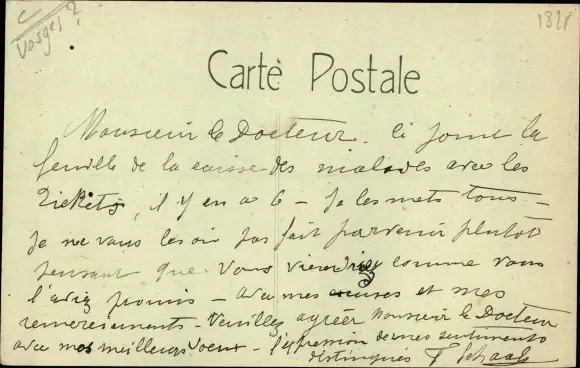 C
Vosges?
Carte Postale
Monsieur le Docteur. Ci joint la
feuille de la caisse des malades avec les
Tickets, il y en a 6 - Je les mets tous -
Je ne vous les ai pas fait parvenir plutôt
pensant que vous viendriez comme vous
l'aviez promis - avec mes excuses et mes
remerciements - Veuillez agréer Monsieur le Docteur
avec mes meilleurs voeux - l'expression de mes sentiments
distingués